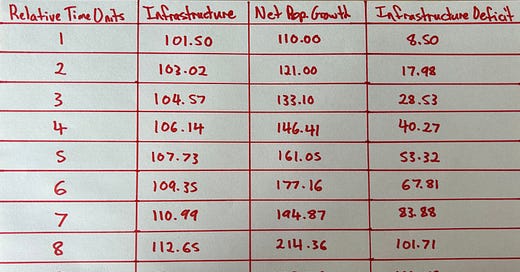 Relative Time Units Infrastructure Net Pop. Growth Infrastructure Deficit
1 101.50 110.00 8.50
2 103.02 121.00 17.98
3 104.57 133.10 28.53
4 106.14 146.41 40.27
5 107.73 161.05 53.32
6 109.35 177.16 67.81
7 110.99 194.87 83.88
8 112.65 214.36 101.71